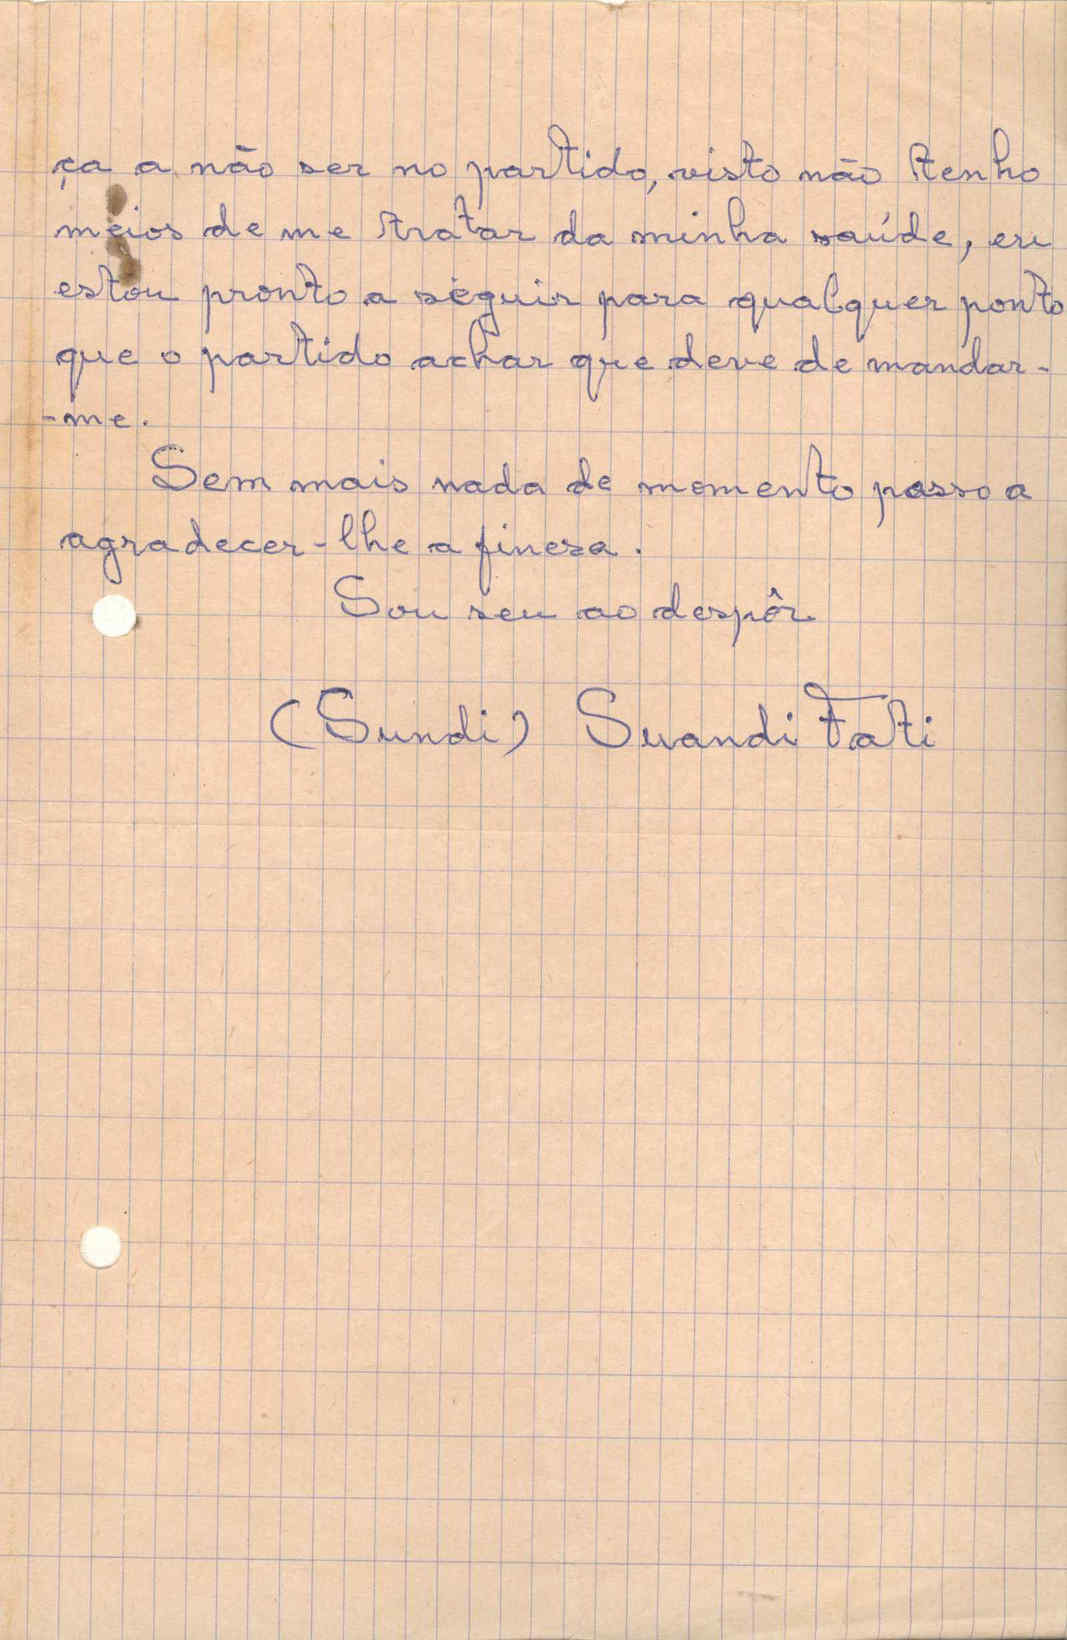 ça a não ser no partido, visto não tenho
meios de me tratar da minha saúde, eu
estou pronto a seguir para qualquer ponto
que o partido achar que deve de mandar-
-me.
Sem mais nada de momento passo a
agradecer-lhe a fineza.
Sou seu ao despôr
(Sundi) Suandi Fati